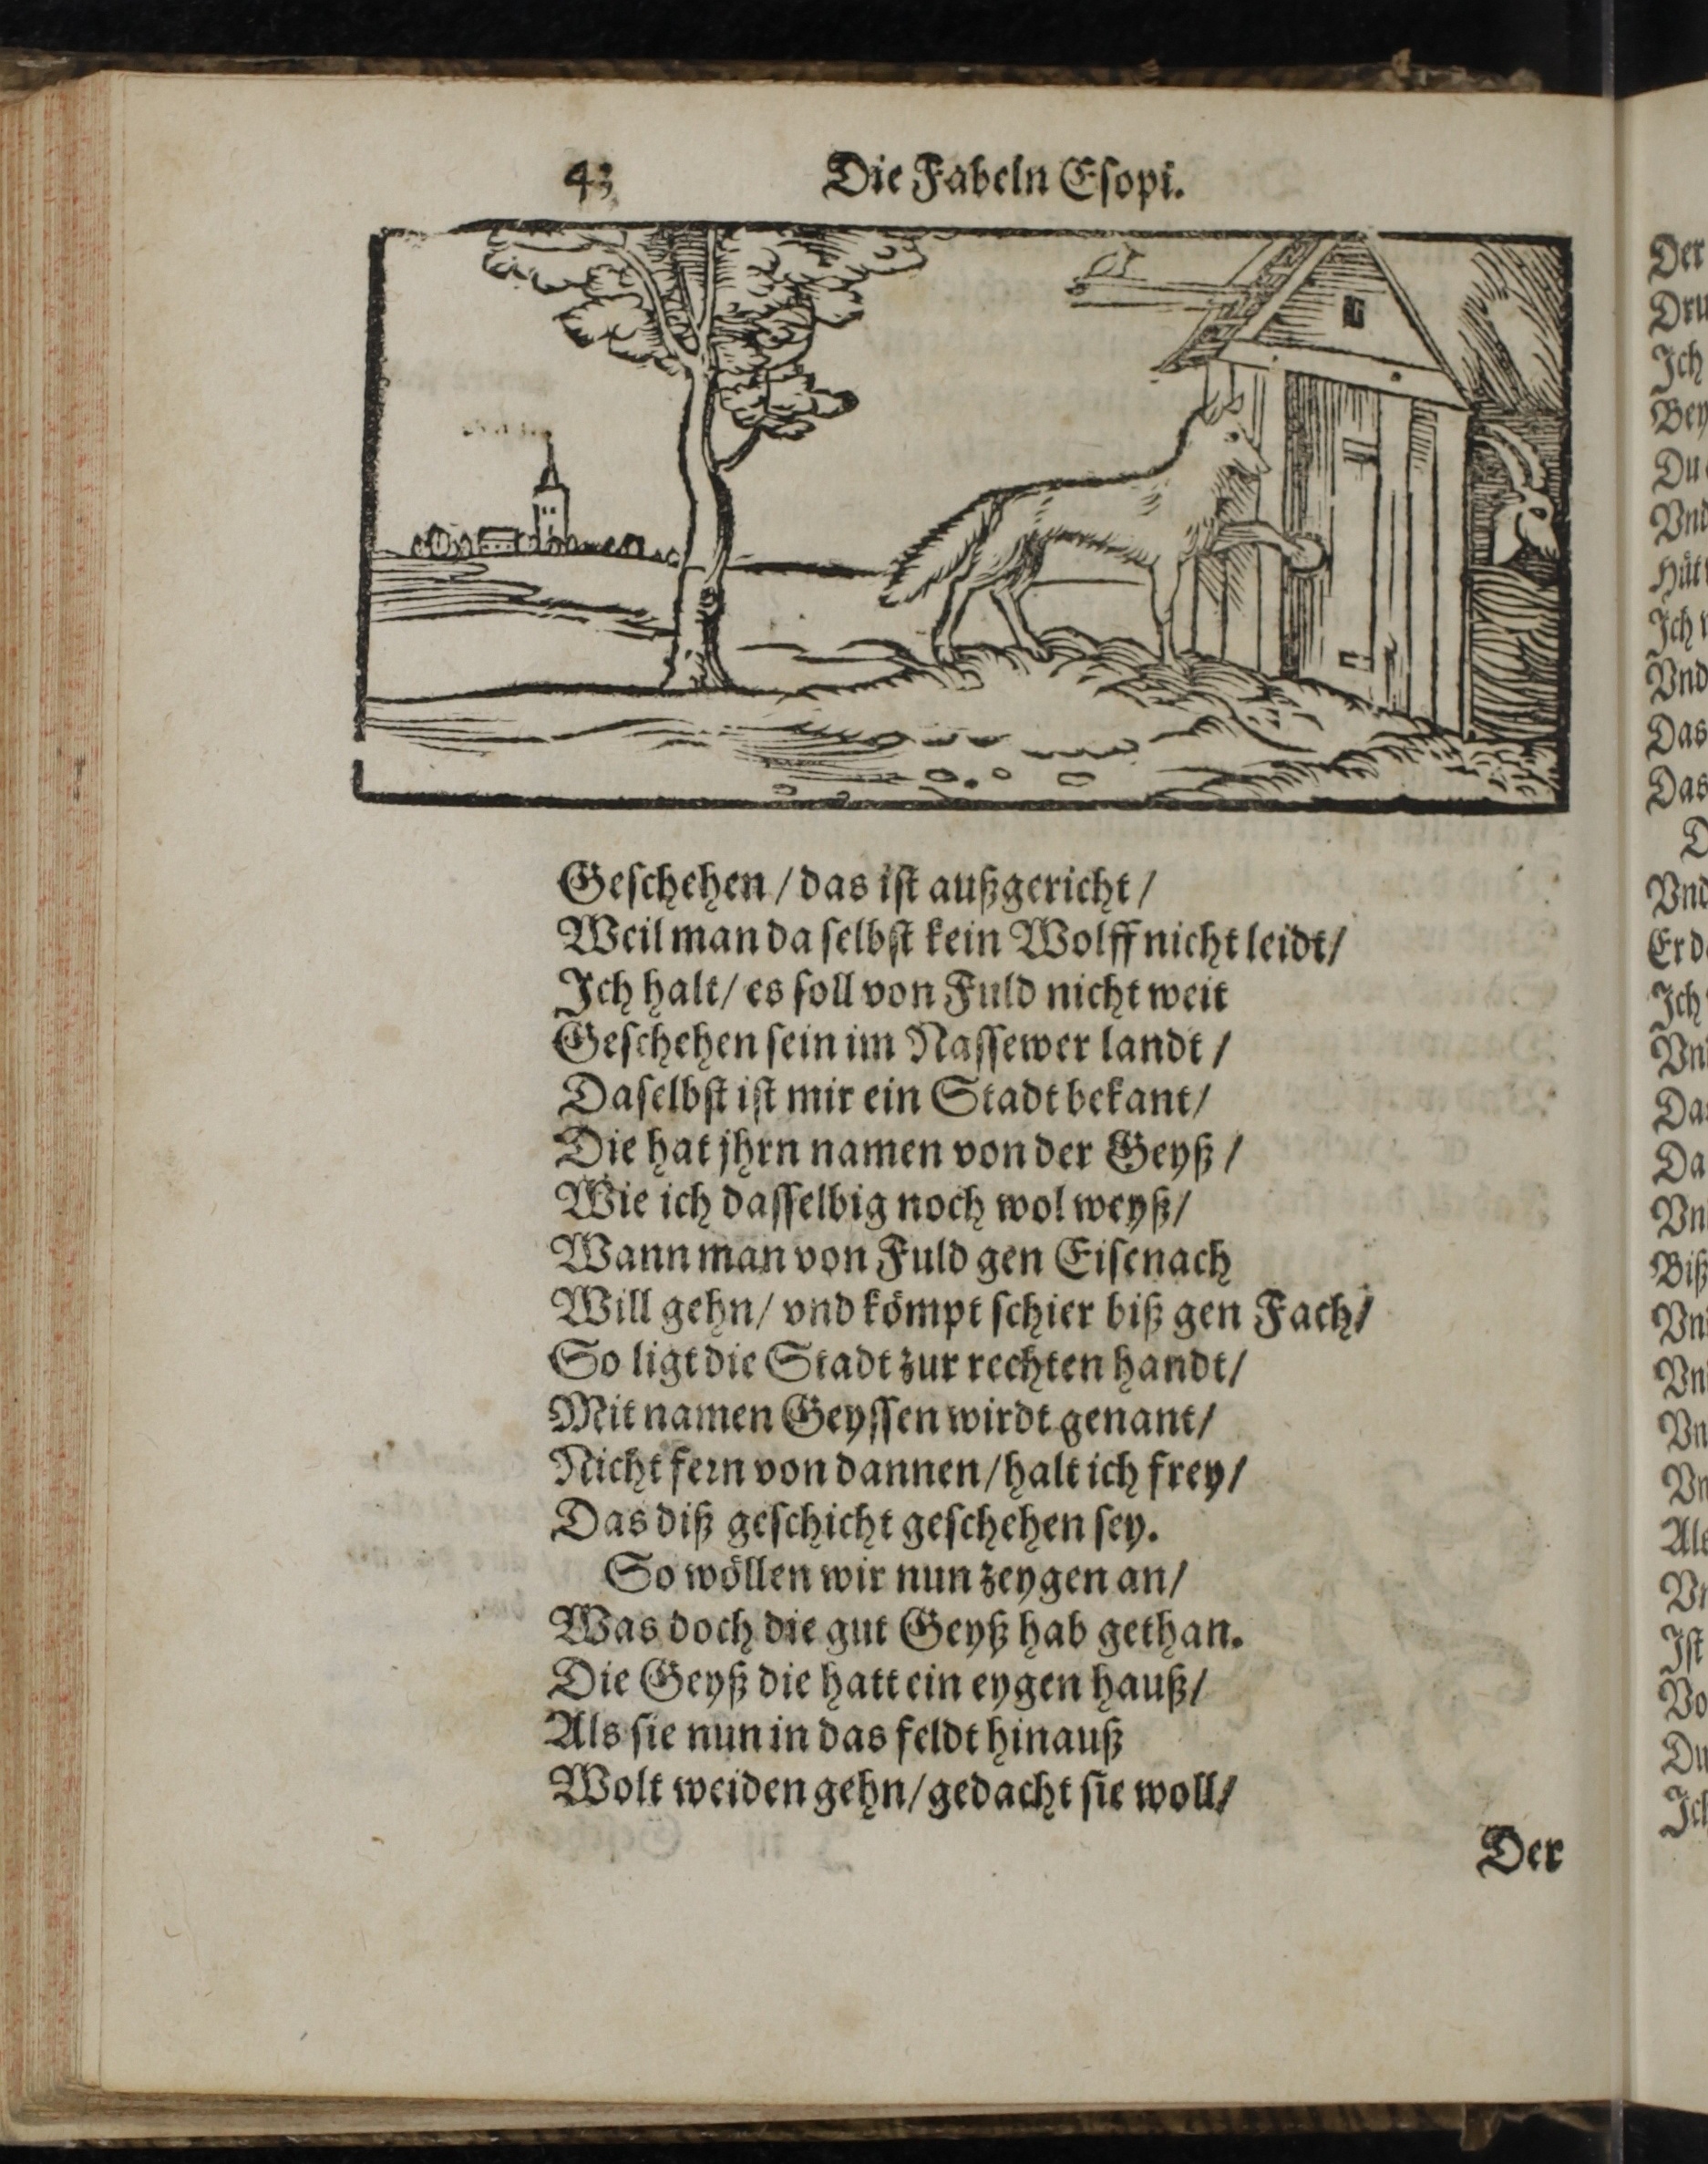 43 Die Fabeln Eſopi.
Geſchehen / das iſt außgericht /
Weil man da ſelbſt kein Wolff nicht leidt /
Ich halt / es ſoll von Fuld nicht weit
Geſchehen ſein im Naſſewer landt /
Daſelbſt iſt mir ein Stadt bekant /
Die hat jhrn namen von der Geyß /
Wie ich daſſelbig noch wol weyß /
Wann man von Fuld gen Eiſenach
Will gehn / vnd kömpt ſchier biß gen Fach /
So ligt die Stadt zur rechten handt /
Mit namen Geyſſen wirdt genant /
Nicht fern von dannen / halt ich frey /
Das diß geſchicht geſchehen ſey.
So wöllen wir nun zeygen an /
Was doch die gut Geyß hab gethan.
Die Geyß die hatt ein eygen hauß /
Als ſie nun in das feldt hinauß
Wolt weiden gehn / gedacht ſie woll /
Der
Der
Ich
Bey
Du
Vnd
Hüt
Ich
Vnd
Das
Das
Vnd
Ich
Da
Biß
Als
Iſt